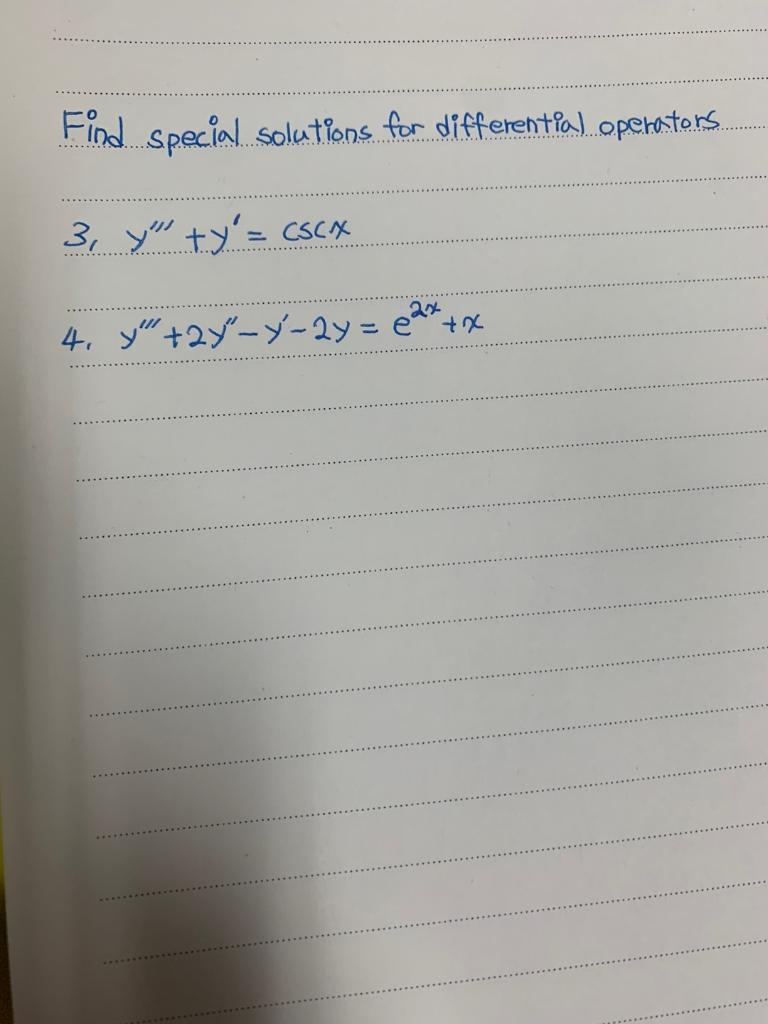 Find special solutions for differential operators
3, y''' + y' = cscx
4. y''' + 2y'' - y' - 2y = e^{2x} + x